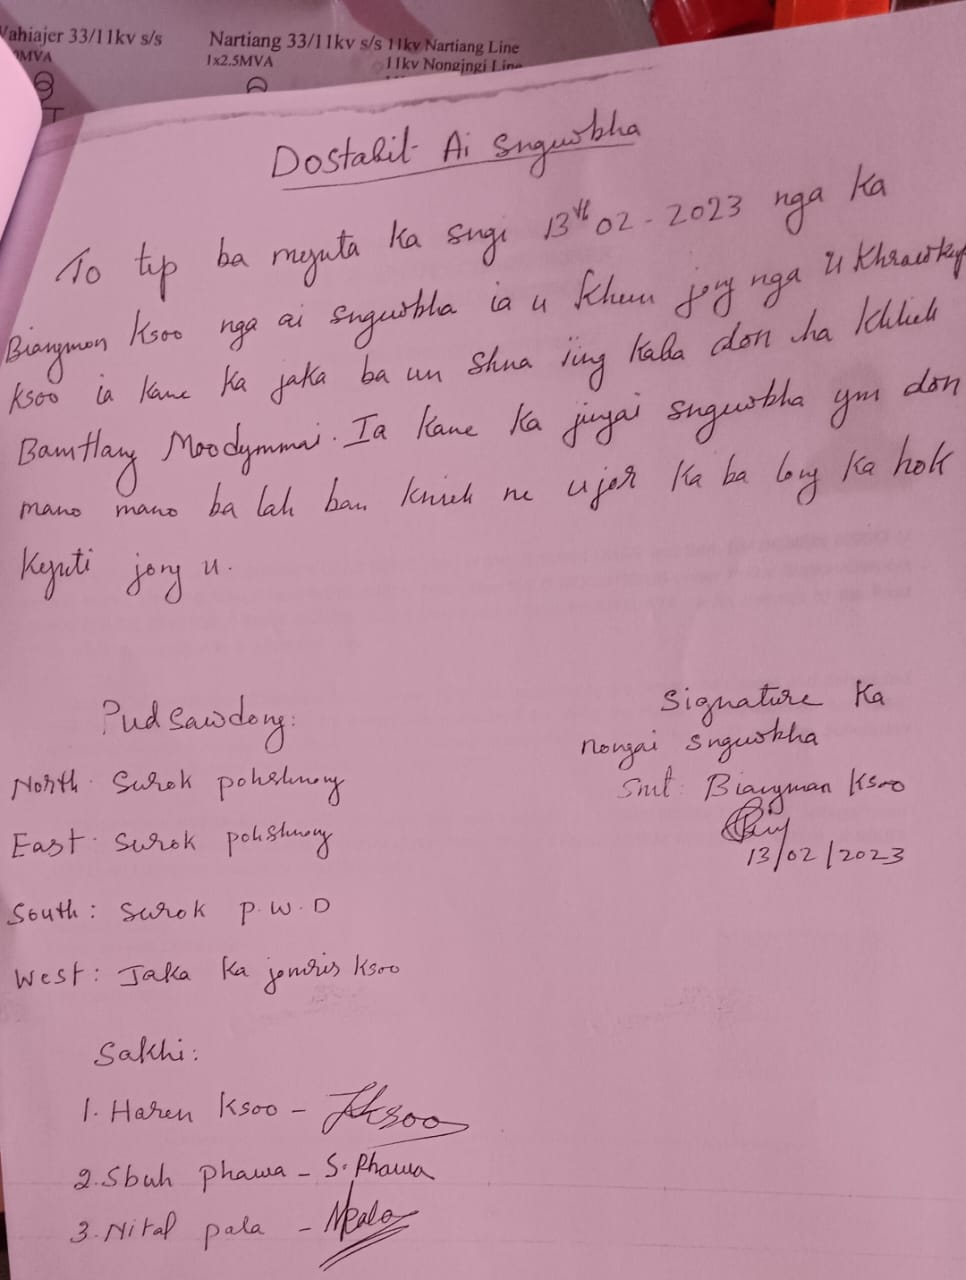 Vahiajer 33/11kv s/s
MVA
Nartiang 33/11kv s/s 11kv Nartiang Line
1x2.5MVA
11kv Nongjngi Line
Dostalil Ai Snguwbha
To tip ba mynta ka sngi 13th 02-2023 nga ka
Biangmon Ksoo nga ai snguwbha ia u khun jong nga U Khrawkey
Ksoo ia kane ka jaka ba un shna iing kaba don ha Khlieh
Bamtlang Moodymmai. Ia kane ka jingai snguwbha ym don
mano mano ba lah ban knieh ne ujor ka ba long ka hok
Kynti jong u.
Pud Sawdong:
North. Surok pohshnong
East. Surok pohshnong
South: Surok P.W.D
West: Jaka ka jomris Ksoo
Signature Ka
nongai snguwbha
Smt: Biangman Ksoo
13/02/2023
Sakhi:
1. Haren Ksoo - HKsoo
2. Sbuh Phawa - S. Phawa
3. Nital pala - NPala